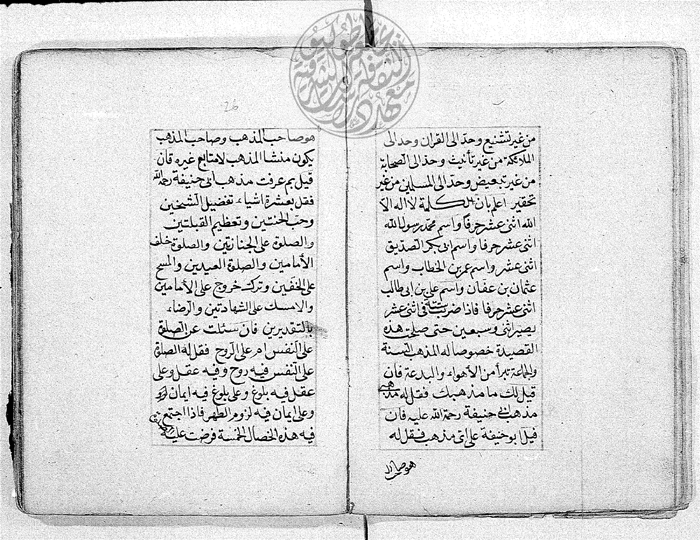 من غير تشنيع وحد الى القران وحد الى
الملائكة من غير تأنيث وحد الى الصحابة
من غير تبعيض وحد الى المسلمين من غير
تحقير اعلم بان كلمة لا اله الا
الله اثنى عشر حرفا واسم محمد رسول الله
اثنى عشر حرفا واسم ابى بكر الصديق
اثنى عشر واسم عمر بن الخطاب واسم
عثمان بن عفان واسم على بن ابى طالب
اثنى عشر حرفا فاذا ضربت ستة فى اثنى عشر
يصير اثنى وسبعين حتى صلى هذه
القصيدة خصوصا له المذهب السنة
والجماعة تبرأ من الأهواء والبدعة فان
قيل لك ما مذهبك فقل له مذهبى
مذهب ابى حنيفة رحمة الله عليه فان
قيل ابو حنيفة على اى مذهب فقل له
هو صاحب
26
هو صاحب المذهب وصاحب المذهب
يكون منشا المذهب لا متابع غيره فان
قيل بم عرفت مذهب ابى حنيفة رحمه الله
فقل بعشرة اشياء تفضيل الشيخين
وحب الختنين وتعظيم القبلتين
والصلوة على الجنازتين والصلوة خلف
الأمامين والصلوة العيدين والمسح
على الخفين وترك خروج على الأمامين
والامسك على الشهادتين والرضاء
بالتقديرين فان سئلت عن الصلوة
على النفس ام على الروح فقل له الصلوة
على النفس فيه روح وفيه عقل وعلى
عقل فيه بلوغ وعلى بلوغ فيه ايمان
وعلى ايمان فيه لزوم الطهر فاذا اجتمع
فيه هذه الخصال الخمسة فرضت عليه